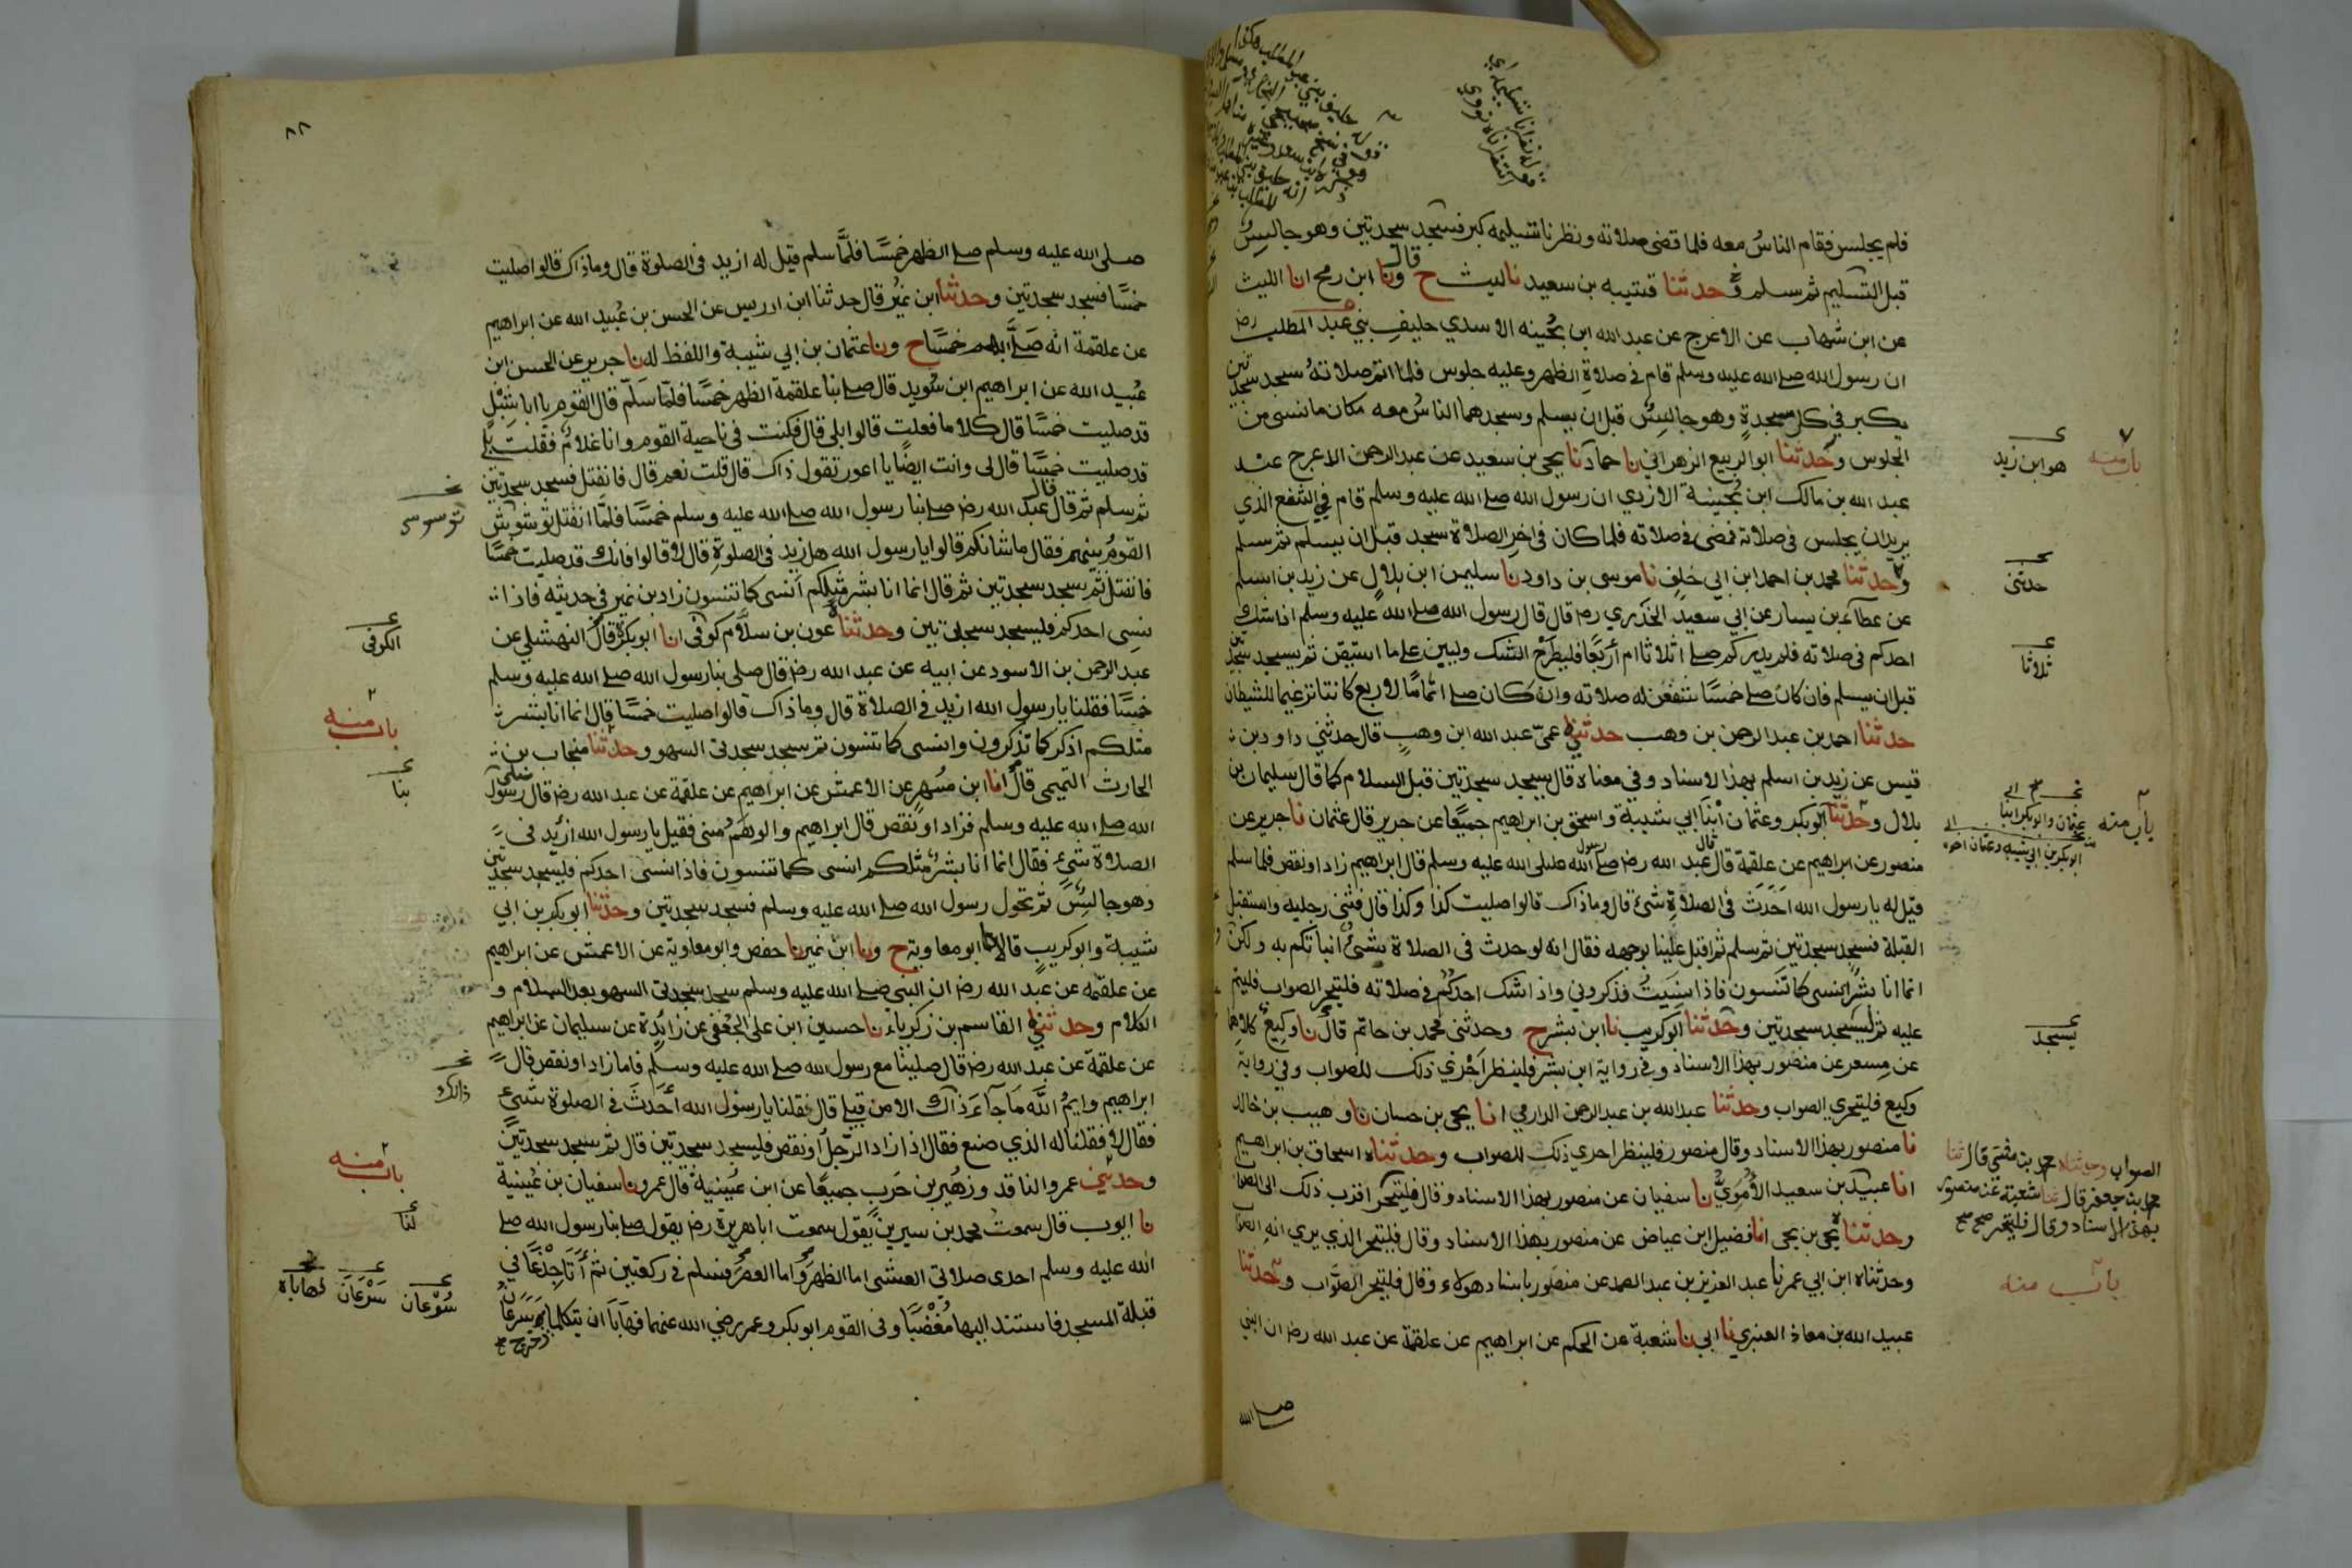 فلم يجلس فقام الناسُ معه فلما قضى صلاته ونظرنا تسليمه كبر فسجد سجدتين وهو جالسٌ
قبل التسليم ثم سلم وحدثنا قتيبه بن سعيد نا ليث ح قال ونا ابن رمح انا الليث
عن ابن شهاب عن الاعرج عن عبد الله ابن بُحَينه الاسدي حليفِ بني عبد المطلب رض
ان رسول الله صلے الله عليه وسلم قام في صلاةِ الظهر وعليه جلوس فلما اتم صلاتهُ سجد سجدتين
يكبر في كل سجدةٍ وهو جالسٌ قبل ان يسلم وسجدهما الناسُ معه مكان ما نسى من
الجلوس وحدثنا ابو الربيع الزهراني نا حماد نا يحيى بن سعيد عن عبد الرحمن الاعرج عنـ
عبد الله بن مالك ابن بُحينة الازدي ان رسول الله صلے الله عليه وسلم قام في الشفع الذي
يريد ان يجلس في صلاته فمضى في صلاته فلما كان في اخر الصلاة سجد قبل ان يسلم ثم سلم
وحدثنا محمد بن احمد ابن ابي خلف نا موسى بن داود نا سليمن ابن بلالٍ عن زيد بن اسلم
عن عطآء بن يسار عن ابي سعيد الخدري رض قال قال رسول الله صلے الله عليه وسلم اذا شك
احدكم في صلاته فلم يدر كم صلے اثلاثا ام أربَعًا فليطرَحْ الشك وليبن علے ما استيقن ثم يسجد سجدتين
قبل ان يسلم فان كان صلے خمسًا شفعن له صلاته وان كان صلے اتمامًا لاربع كانتا ترغيما للشيطان
حدثنا احمد بن عبد الرحمن بن وهب حدثني عمّى عبد الله ابن وهبٍ قال حدثني داود بن
قيس عن زيد بن اسلم بهذا الاسناد وفي معناه قال يسجد سجدتين قبل السلام كما قال سليمان بن
بلال وحدثنا ابو بكر وعثمان ابنا ابي شيبة واسحق بن ابراهيم جميعًا عن جرير قال عثمان نا جرير عن
منصور عن ابراهيم عن علقمة قال قال عبد الله رض صلے رسول الله صلى الله عليه وسلم قال ابراهيم زاد او نقص فلما سلم
قيل له يا رسول الله احَدَثَ في الصلاةِ شئ قال وما ذاك قالوا صليت كذا وكذا قال فثنى رجليه واستقبل
القبلة فسجد سجدتين ثم سلم ثم اقبل علينا بوجهه فقال انه لو حدث في الصلاة شئٌ أنبأتكم به ولكن
انما انا بشر انسى كما تنسون فاذا نسيتُ فذكروني واذا شك احدكُم في صلاته فليتحر الصواب فليتم
عليه ثم ليسجد سجدتين وحدثنا ابو كريب نا ابن بشر ح وحدثنى محمد بن حاتم قال نا وكيعٌ كلاهما
عن مِسعر عن منصور بهذا الاسناد وفي رواية ابن بشر فلينظر اَحْرٰي ذلك للصواب وفي رواية
وكيع فليتحري الصواب وحدثنا عبد الله بن عبد الرحمن الدارمي انا يحيى بن حسان نا وهيب بن خالد
نا منصور بهذا الاسناد وقال منصور فلينظر احرى ذلك للصواب وحدثناه اسحاق بن ابراهيم
انا عبيد بن سعيد الأُموِيُّ نا سفيان عن منصور بهذا الاسناد وقال فليتحر اقرب ذلك الى الصواب
وحدثناه يحيى بن يحيى انا فضيل ابن عياض عن منصور بهذا الاسناد وقال فليتحر الذي يري انه الصواب
وحدثناه ابن ابي عمر نا عبد العزيز بن عبد الصمد عن منصور باسناد هولاء وقال فليتحر الصَّواب وحدثنا
عبيد الله بن معاذ العنبري نا ابي نا شعبة عن الحكم عن ابراهيم عن علقمة عن عبد الله رض ان النبي
صلى الله
باب منه
هو ابن زيد
حدثنى
ثلاثا
باب منه
عثمان وابو بكر ابنا
يسجد
الصواب وحدثناه محمد بن مثنى قال ثنا
محمد بن جعفر قال ثنا شعبة عن منصور
بهذا الاسناد وقال فليتحر صح صح
باب منه
٨٨
صلى الله عليه وسلم صلے الظهر خمسًا فلمَّا سلم قيل له ازيد في الصلوة قال وما ذاك قالوا صليت
خمسًا فسجد سجدتين وحدثنا ابن نمير قال حدثنا ابن ادريس عن الحسن بن عُبيد الله عن ابراهيم
عن علقمة انه صَلّے بهم خمسًا ح ونا عثمان بن ابي شيبة واللفظ له نا جرير عن الحسن ابن
عُبيد الله عن ابراهيم ابن سُويد قال صلے بنا علقمة الظهر خمسًا فلمّا سَلّم قال القوم يا ابا شِبْلٍ
قد صليت خمسًا قال كلا ما فعلت قالوا بلى قال فكنت في ناحية القوم وانا غلامٌ فقلت بلے
قد صليت خمسًا قال لى وانت ايضًا يا اعور تقول ذاك قال قلت نعم قال فانفتل فسجد سجدتين
ثم سلم ثم قال قال عبد الله رض صلے بنا رسول الله صلے الله عليه وسلم خمسًا فلمّا انفتل توشوش
القومُ بينهم فقال ما شانكم قالوا يا رسول الله هل زيد في الصلوةِ قال لا قالوا فانك قد صليت خمسًا
فانفتل ثم سجد سجدتين ثم قال انما انا بشر مثلكم أنسى كما تنسون زاد بن نمير في حديثه فاذا
نسِى احدكم فليسجد سجدتين وحدثناه عون بن سلّام كوفى انا ابو بكر قال النهشلي عن
عبد الرحمن بن الاسود عن ابيه عن عبد الله رض قال صلى بنا رسول الله صلے الله عليه وسلم
خمسًا فقلنا يا رسول الله ازيد في الصلاة قال وما ذاك قالوا صليت خمسًا قال انما انا بشر
مثلكم اذكر كما تذكرون وانسى كما تنسون ثم سجد سجدتى السهو وحدثنا منجاب بن
الحارث التميمى قال انا ابن مُسْهِر عن الاعمش عن ابراهيم عن علقمة عن عبد الله رض قال صلى رسول
الله صلے الله عليه وسلم فزاد او نقص قال ابراهيم والوهَمُ منى فقيل يا رسول الله ازيد في
الصلاة شئٍ فقال انما انا بشرٌ مثلكم انسى كما تنسون فاذا انسى احدكم فليسجد سجدتين
وهو جالسٌ ثم تحول رسول الله صلے الله عليه وسلم فسجد سجدتين وحدثنا ابو بكر بن ابي
شيبة وابو كريب قالا نا ابو معاوية ح ونا ابن نمير نا حفص وابو معاوية عن الاعمش عن ابراهيم
عن علقمه عن عبد الله رض ان النبي صلے الله عليه وسلم سجد سجدتى السهو بعد السلام و
الكلام وحدثني القاسم بن زكرياء نا حسين ابن على الجُعْفى عن زائدة عن سليمان عن ابراهيم
عن علقمة عن عبد الله رض قال صلينا مع رسول الله صلے الله عليه وسلم فاما زاد او نقص قال
ابراهيم وايمُ اللّه مَا جآءَ ذاك الا من قبلے قال فقلنا يا رسول الله أحَدَثَ في الصلوة شئ
فقال لا فقلنا له الذي صنع فقال اذا زاد الرّجل او نقص فليسجد سجدتين قال ثم سجد سجدتين
وحدثني عمرو الناقد وزهير بن حَرب جميعًا عن ابن عُيينة قال عمرو نا سفيان بن عُيينة
نا ايوب قال سمعت محمد بن سيرين يقول سمعت ابا هريرة رض يقول صلے بنا رسول الله صلے
الله عليه وسلم احدى صلاتي العشى اما الظهر واما العصر فسلم في ركعتين ثم أتَا جِذْعًا في
قبلة المسجد فاستند اليها مُغْضَبًا وفى القوم ابو بكر وعمر رضي الله عنهما فهَابَا ان يتكلما وخرج سَرعَان
توسوس
الكوفى
باب منه
بنا
ذالك
باب منه
لنا
سُرْعان سَرْعَان فهاباه